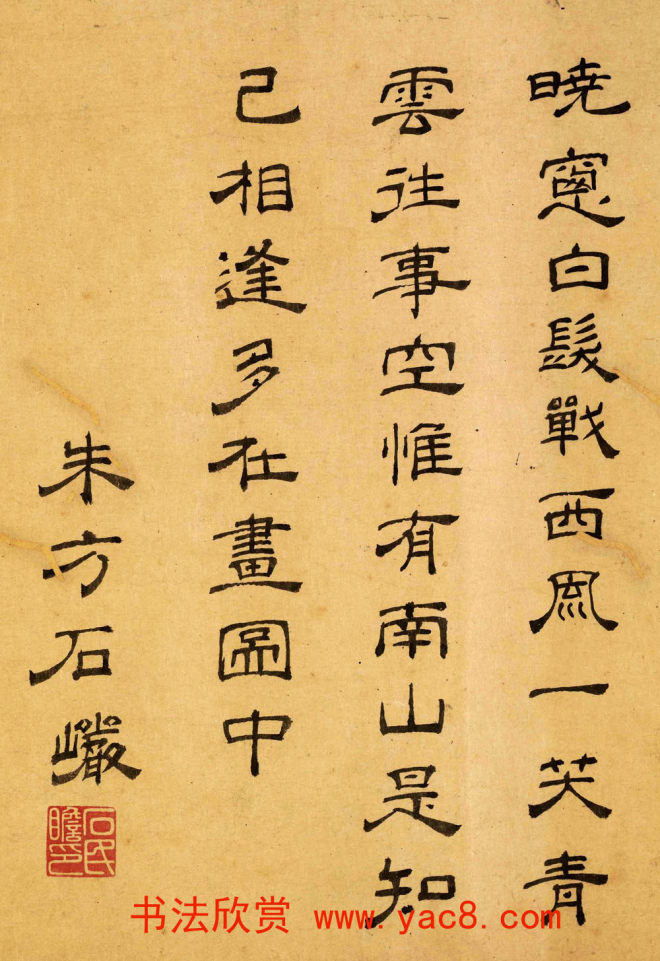 曉窻白髮戰西風一笑青
雲往事空惟有南山是知
己相逢多在畫圖中
朱方石巖
石民瞻印
书法欣赏 www.yac8.com